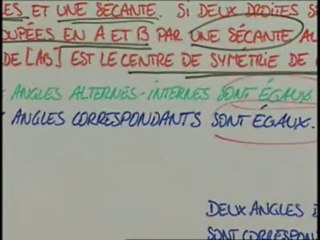 ES ET UNE SÉCANTE. SI DEUX DROITES S
OUPÉES EN A ET B PAR UNE SÉCANTE AL
DE [AB] EST LE CENTRE DE SYMÉTRIE DE
ANGLES ALTERNES-INTERNES SONT ÉGAUX
ANGLES CORRESPONDANTS SONT ÉGAUX.
DEUX ANGLES
SONT CORRESPON